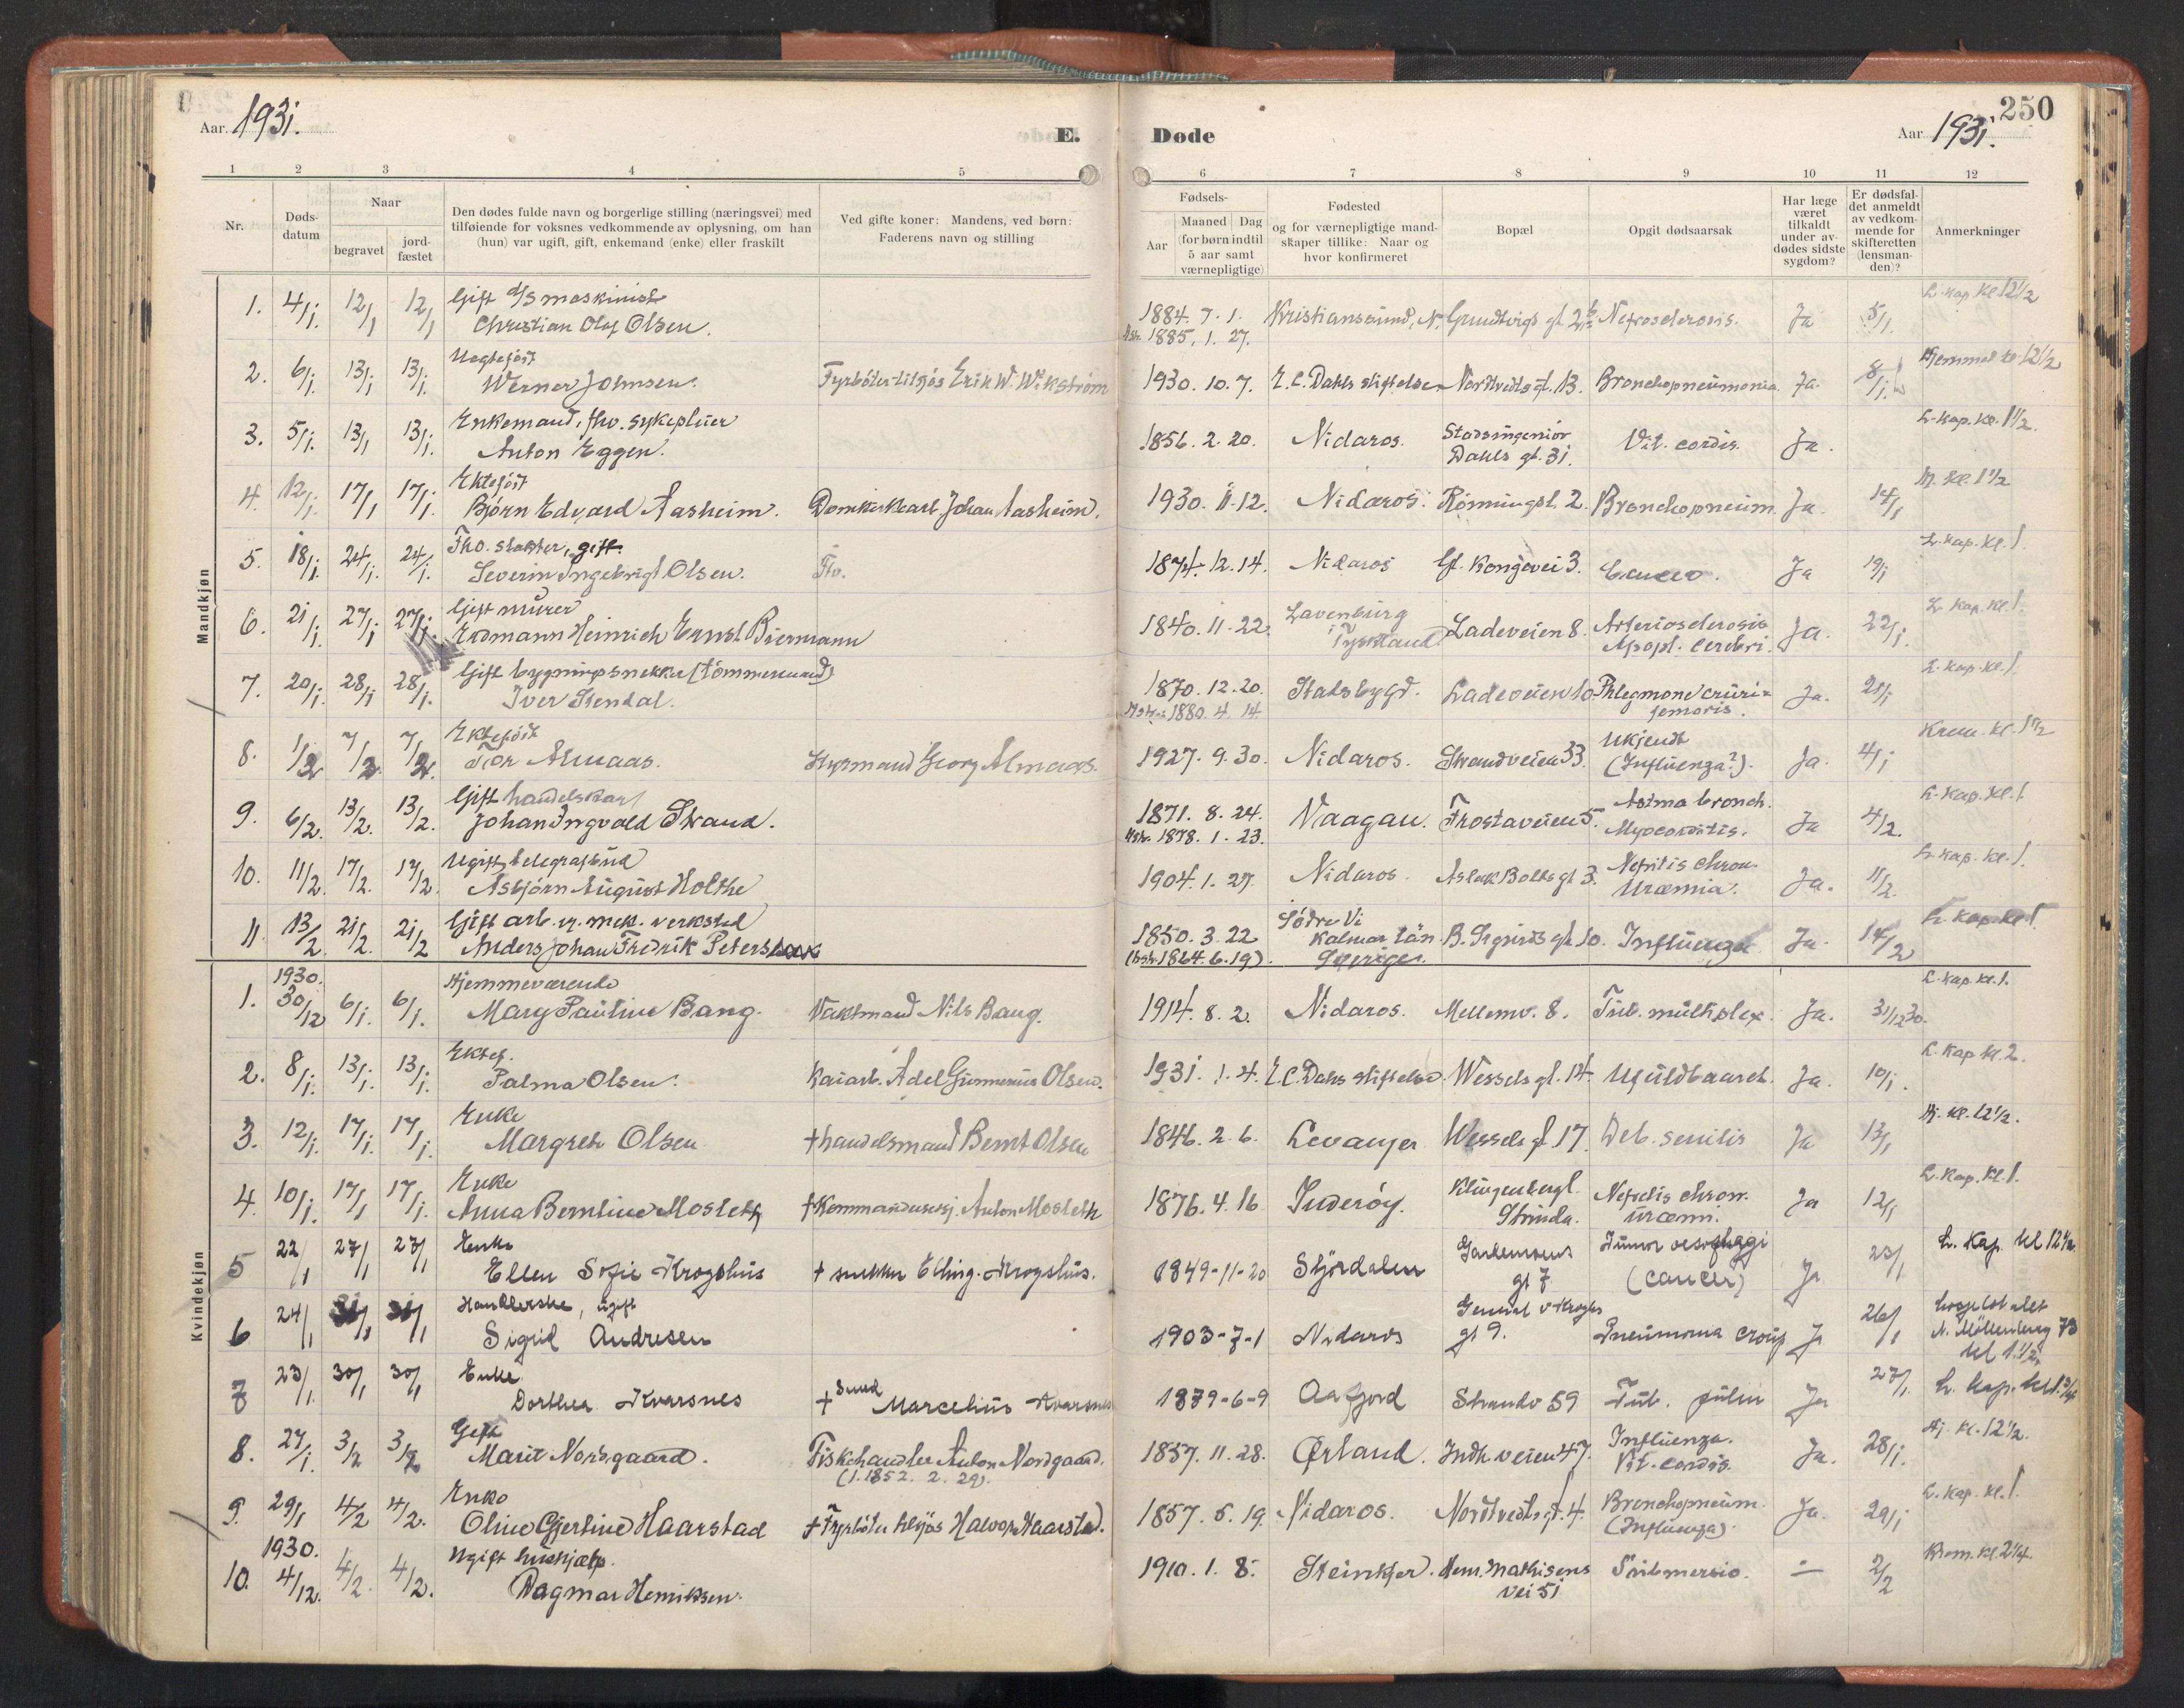 250
Aar. 1931. E. Døde Aar 1931.
1 2 3 4 5 6 7 8 9 10 11 12
Nr.
Døds-
datum
Naar
begravet
jord-
fæstet
Den dødes fulde navn og borgerlige stilling (næringsvei) med
tilføiende for voksnes vedkommende av oplysning, om han
(hun) var ugift, gift, enkemand (enke) eller fraskilt
Ved gifte koner: Mandens, ved børn:
Faderens navn og stilling
Fødsels-
Aar
Maaned Dag
(for børn indtil
5 aar samt
værnepligtige)
Fødested
og for værnepligtige mand-
skaper tillike: Naar og
hvor konfirmeret
Bopæl
Opgit dødsaarsak
Har læge
været
tilkaldt
under av-
dødes sidste
sygdom?
Er dødsfal-
det anmeldt
av vedkom-
mende for
skifteretten
(lensman-
den)?
Anmerkninger
Mandkjøn
Gift d/s maskinist L. kap. kl. 12 1/2
1. 4/1. 12/1 12/1 Christian Olaf Olsen. 1884. 7. 1. Kristiansund, N. Grundtvigs gt. Nefrosclerosis. Ja 5/1.
1885. 1. 27.
Uegtefød Hjemmet kl. 12 1/2
2. 6/1. 13/1 13/1. Werner Johnsen. Fyrbøter tilsjøs Erik W. Wikstrøm 1930. 10. 7. E. C. Dahls stiftelse Nordtvedts gt. 13. Bronchopneumonia. Ja. 8/1.
Enkemand, fhv. sykepleier L. kap. kl. 1 1/2.
3. 5/1. 13/1 13/1. Anton Eggen. 1856. 2. 20. Nidaros. Stadsingeniør
Dahls gt. 31. Vit. cordis. Ja.
Ektefød Hj. kl. 1 1/2
4. 12/1. 17/1 17/1. Bjørn Edvard Aasheim. Domkirkearb. Johan Aasheim. 1930. 11. 12. Nidaros. Rønningsl. 2. Bronchopneum. Ja. 14/1
Fho. slakter, gift. L. kap. kl. 1.
5. 18/1. 24/1. 24/1. Severin Ingebrigt Olsen. 1874. 12. 14. Nidaros Gl. Kongevei 3. Cancer. Ja 19/1
Gift murer L. kap. kl. 1.
6. 21/1. 27/1 27/1. Erdmann Heinrich Ernst Biermann 1840. 11. 22. Lavenburg
i Tyskland Ladeveien 8. Arteriosclerosis
Apopl. cerebri. Ja. 22/1.
Gift bygningssnekker (tømmermand) L. kap. kl. 1.
7. 20/1. 28/1 28/1. Iver Stendal. 1870. 12. 20. Stadsbygd. Ladeveien 10 Phlegmone cruri-
femoris. Ja. 21/1
1880. 4. 14
Ektefød Krem. kl. 1 1/2
8. 1/2 7/2. 7/2. Tor Almaas. Styrmand Georg Almaas. 1927. 9. 30. Nidaros. Strandveien 33. Ukjendt
(Influenza?). Ja. 4/1
Gift handelskar L. kap. kl. 1.
9. 6/2. 13/2. 13/2. Johan Ingvald Strand. 1871. 8. 24. Vaagan. Frostaveien 5. Astma bronch.
Myocorditis. Ja 4/2.
1878. 1. 23.
Ugift, telegrafbud L. kap. kl. 1.
10. 11/2. 17/2. 17/2. Asbjørn August Holthe 1904. 1. 27. Nidaros. Aslak Bolts gt 3. Nefritis chron.
Uræmia. Ja. 11/2.
Gift arb. v. mek. verksted L. kap. kl. 1
11 13/2 21/2. 21/2 Anders Johan Fredrik Peterson 1850. 3. 22 Södra Vi
Kalmar län.
Sverige. B. Sigurds gt. 10. Influenza Ja. 14/2
1864. 6. 19).
Kvindekjøn
1930. Hjemmeværende L. kap. kl. 1.
1. 30/12 6/1. 6/1. Mary Pauline Bang. Vaktmand Nils Bang. 1914. 8. 2. Nidaros. Mellemv. 8. Tub. multiplex. Ja. 31/12 30.
Ektef. L. kap kl. 2.
2. 8/1. 13/1. 13/1. Palma Olsen. Kaiarb. Adel Gunnerius Olsen. 1931. 1. 4. E. C. Dahls stiftelse. Wessels gt. 14. Ufuldbaaret. Ja. 10/1.
Enke Hj. kl. 12 1/2.
3. 12/1. 17/1. 17/1. Margrete Olsen + handelsmand Bernt Olsen 1846. 2. 6. Levanger Wessels gt 17. Deb. senilis Ja 13/1
Enke L. kap. kl. 1.
4. 10/1. 17/1 17/1. Anna Berntine Mosleth + Kommandersj. Anton Mosleth 1876. 4. 16 Inderøy. Klingenbergl.
Strinda. Nefritis chron.
uræmi. Ja 12/1
Enke L. Kap. kl 12 1/2
5 22/1 27/1 27/1 Ellen Sofie Krogshus + snekker Elling Krogshus. 1849-11-20 Stjørdalen
gt 7 Tumor oesophagi
(cancer) Ja 23/1
Handlerske, ugift
6 24/1 31/1 31/1 Sigrid Andresen 1903-7-1 Nidaros General v Kroghs
gt 9. Pneumonia croup Ja 26/1 hospitalet
N. Møllenberg 73
kl 1 1/2
Enke
7 23/1. 30/1 30/1 Dorthea Kvarsnes + Smed Marcelius Kvarsnes 1879-6-9 Aafjord Strandv 59 Tub. pulm Ja 27/1. L. kap.
Gift Hj. kl. 12 1/2.
8. 27/1. 3/2 3/2 Marit Nordgaard. Fiskehandler Anton Nordgaard.
(f. 1852. 2. 29). 1857. 11. 28. Ørland. Indh. veien 47. Influenza.
Vit. cordis. Ja. 28/1.
Enke L. kap. kl. 1.
9. 29/1 4/2 4/2. Oline Gjertine Haarstad + Fyrbøter tilsjøs Halvor Haarstad. 1857. 5. 19. Nidaros. Nordtvedts gt. 4. Bronchopneum.
(Influenza). Ja. 29/1
1930. Ugift hushjælp. Krem. kl. 2 1/4.
10. 4/12. 4/2. 4/2. Dagmar Henriksen. 1910. 1. 8. Steinkjer. Henr. Mathisens
vei 51 Submersio. ÷ 2/2